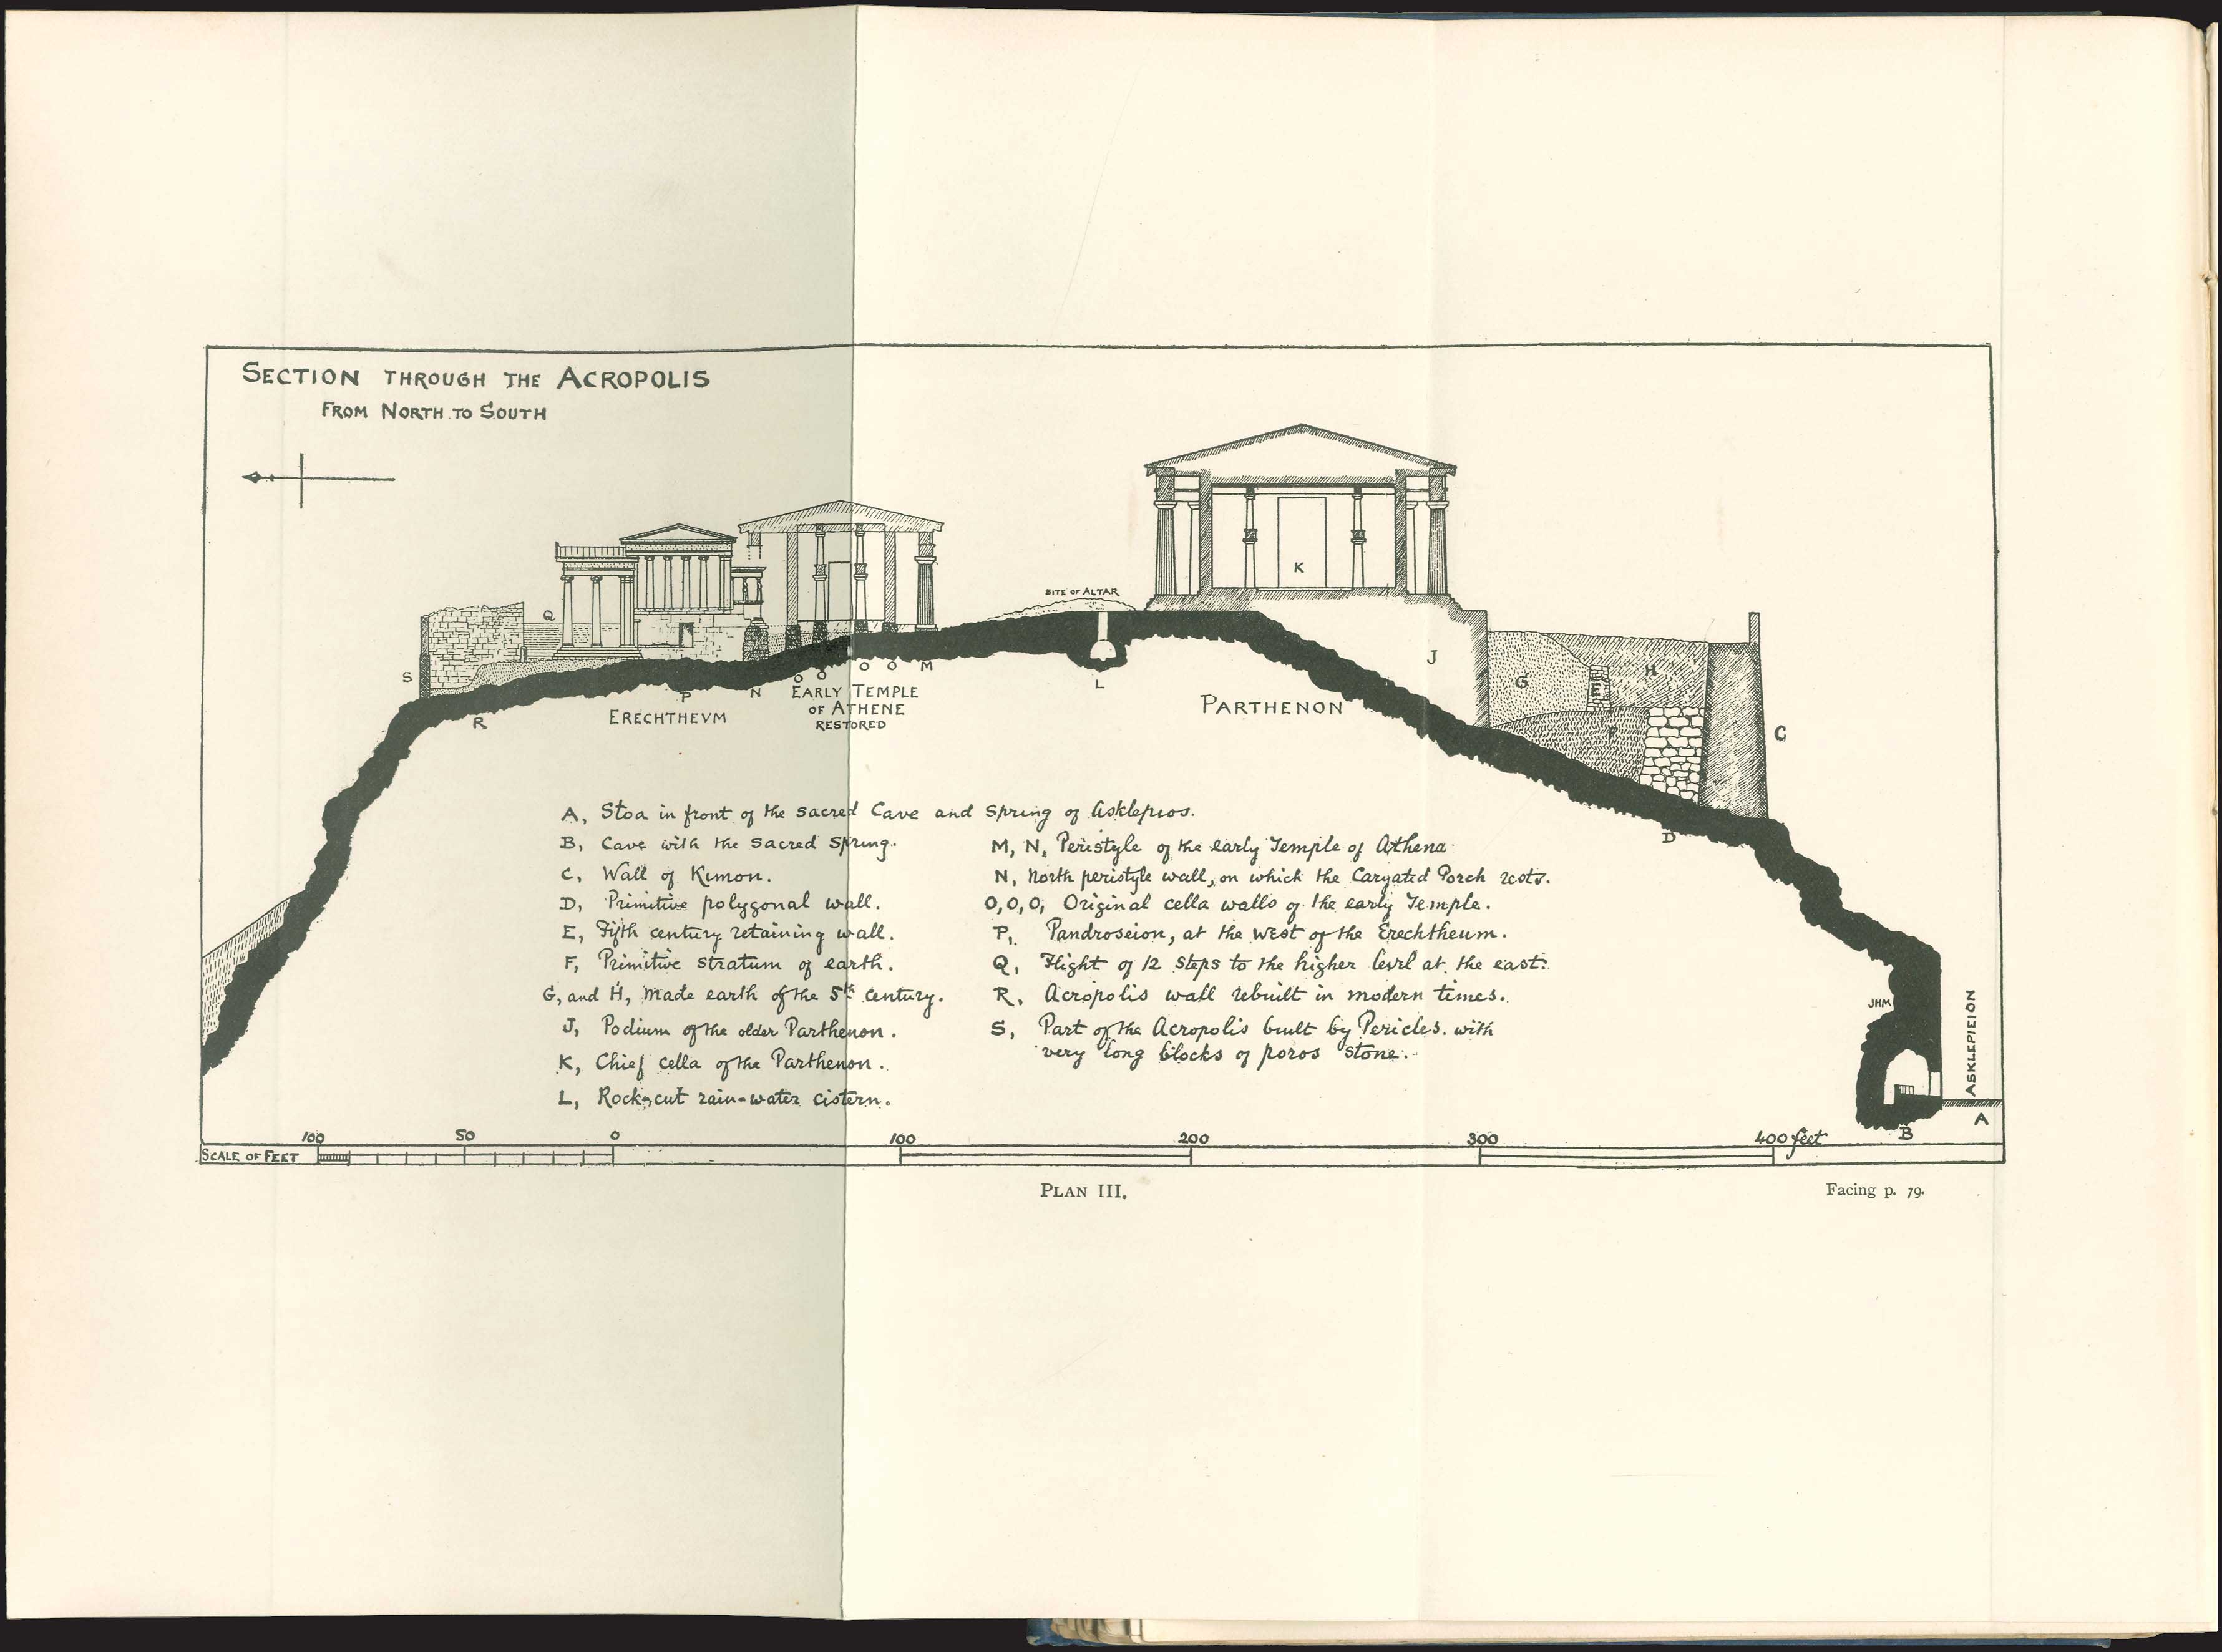 SECTION THROUGH THE ACROPOLIS
FROM NORTH TO SOUTH
SITE OF ALTAR
K
Q
S
R
P
N
O O O O M
L
J
G
E
H
F
C
D
ERECHTHEVM
EARLY TEMPLE
OF ATHENE
RESTORED
PARTHENON
A, Stoa in front of the sacred Cave and Spring of Asklepios.
B, Cave with the sacred spring.
C, Wall of Kimon.
D, Primitive polygonal wall.
E, Fifth century retaining wall.
F, Primitive stratum of earth.
G, and H, made earth of the 5th century.
J, Podium of the older Parthenon.
K, Chief cella of the Parthenon.
L, Rock-cut rain-water cistern.
M, N, Peristyle of the early Temple of Athena
N, North peristyle wall, on which the Caryatid Porch rests.
O,O,O, Original cella walls of the early Temple.
P, Pandroseion, at the west of the Erechtheum.
Q, Flight of 12 steps to the higher level at the east.
R, Acropolis wall rebuilt in modern times.
S, Part of the Acropolis built by Pericles. with
very long blocks of poros stone.
JHM
ASKLEPIEION
A
B
100 50 0 100 200 300 400 feet
SCALE OF FEET
PLAN III.
Facing p. 79.